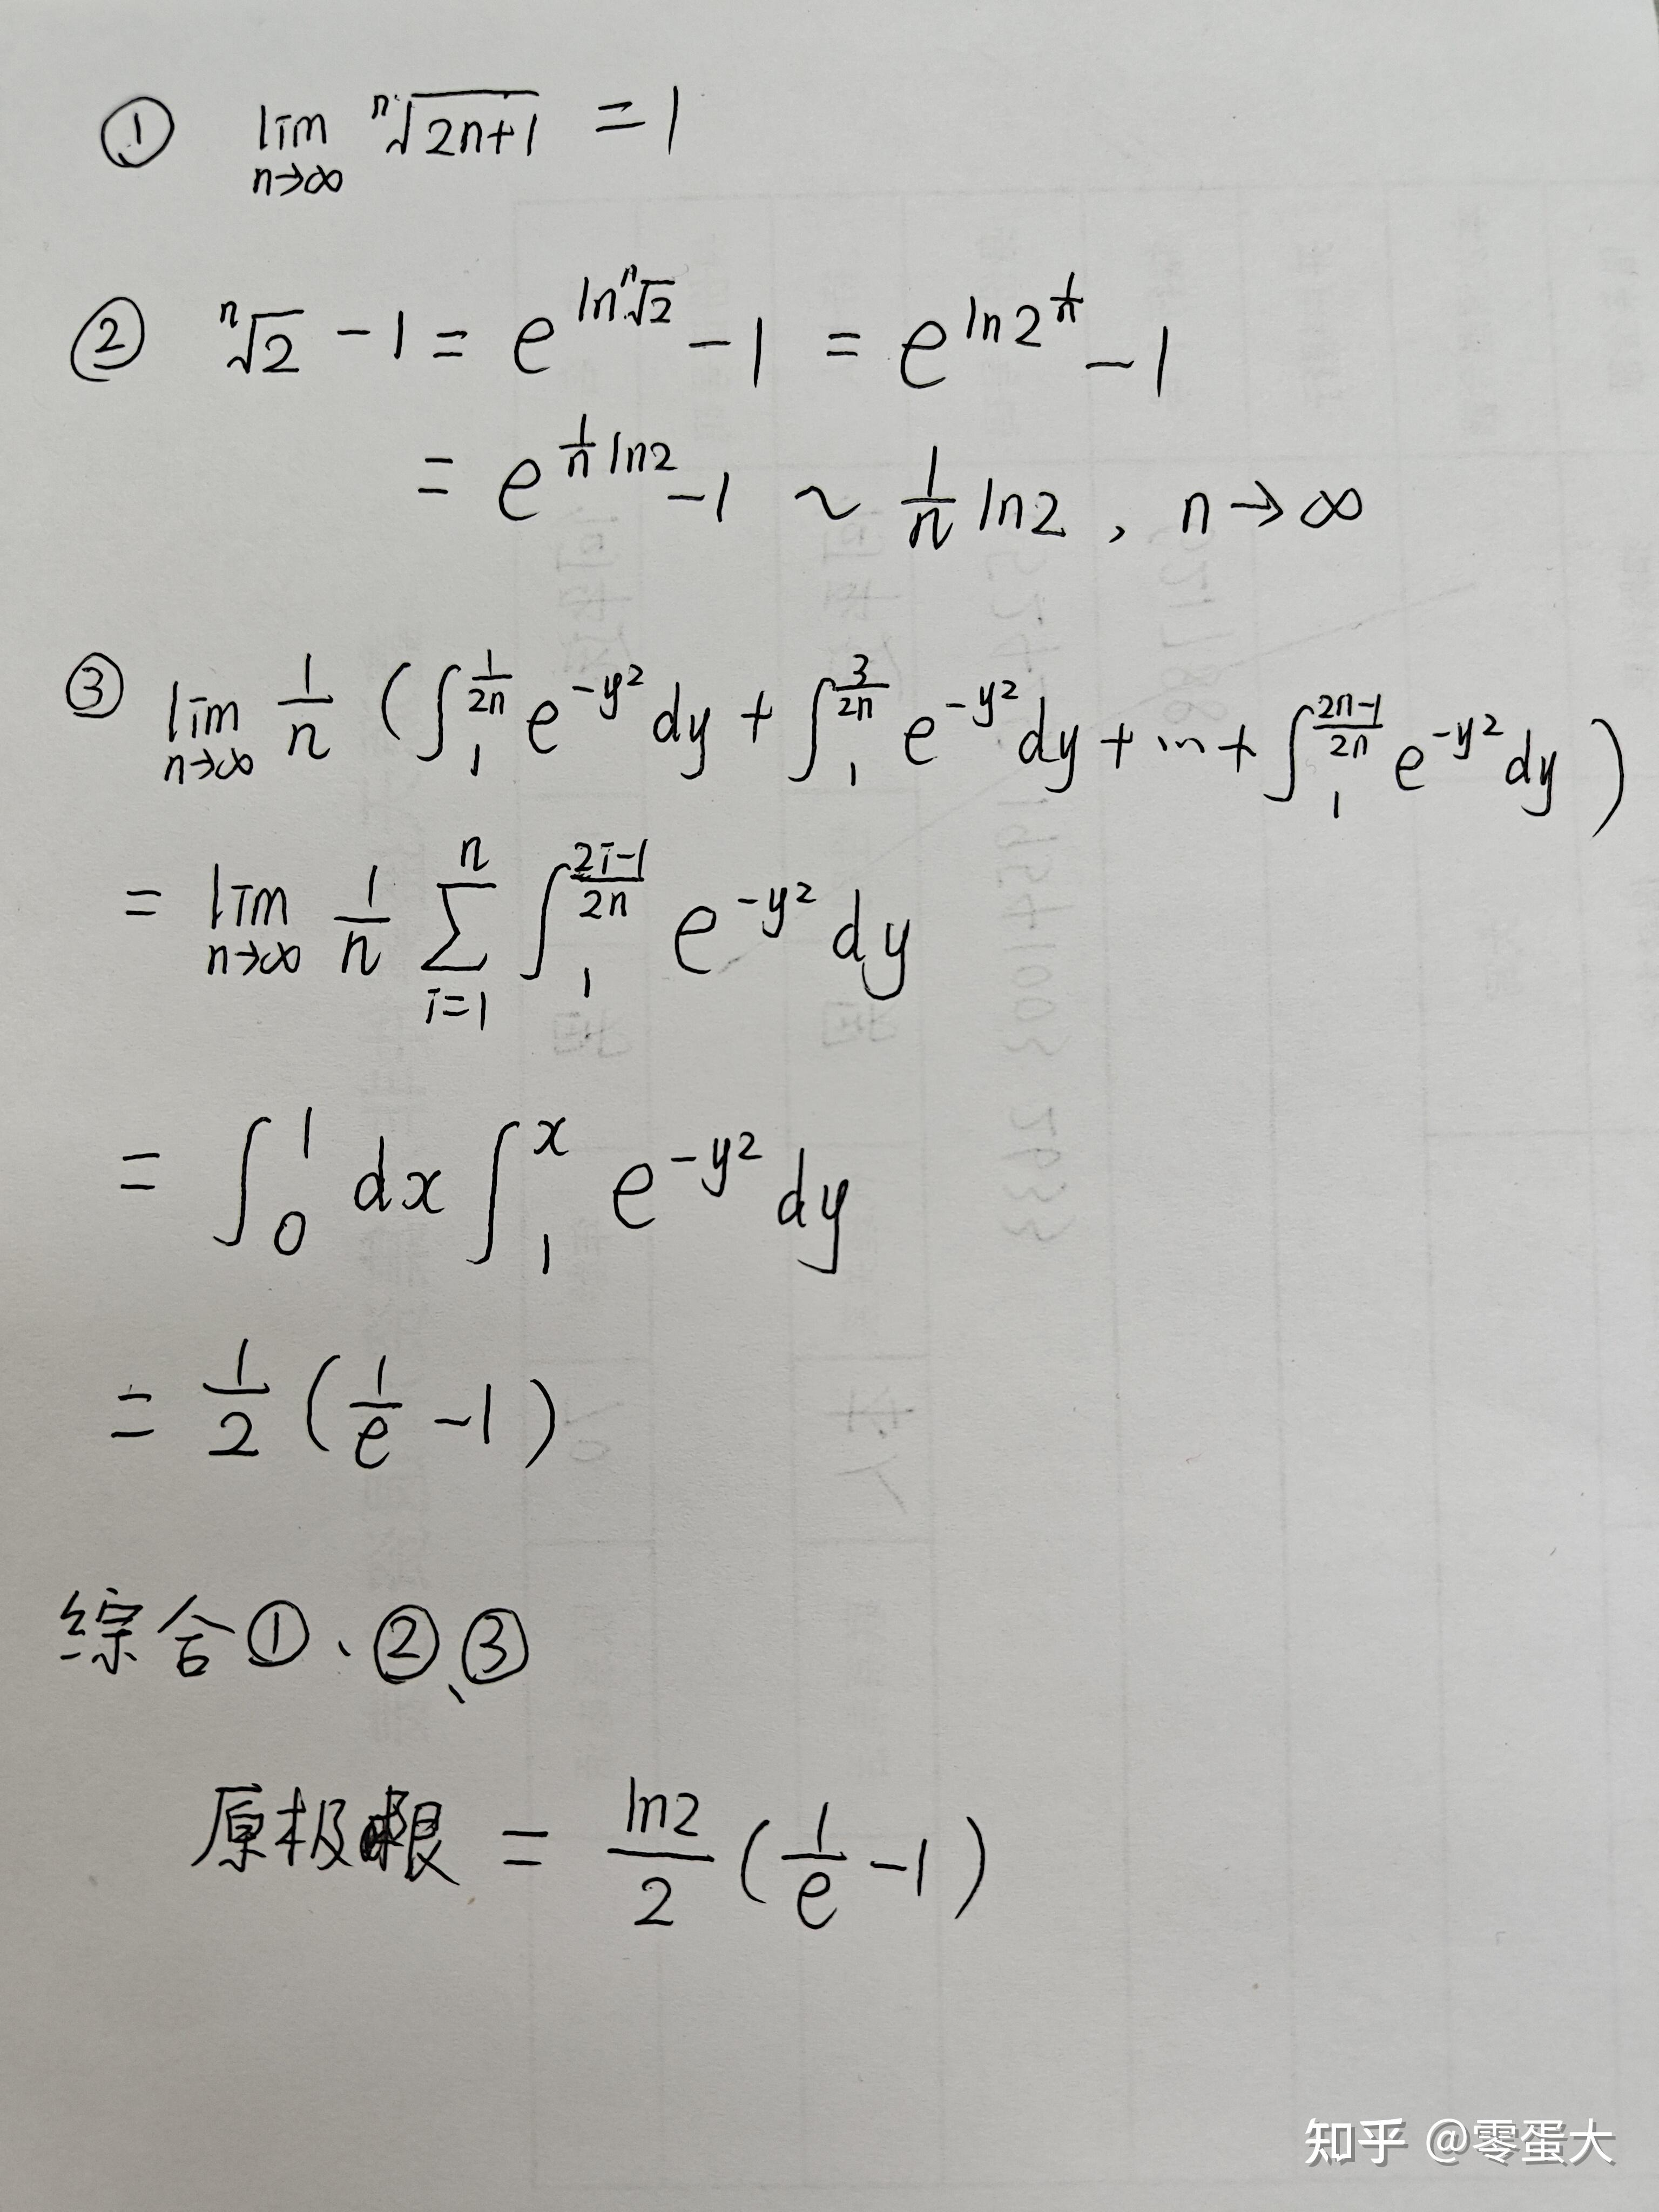 ① lim n→∞ ⁿ√(2n+1) = 1
② ⁿ√2 - 1 = e^(ln ⁿ√2) - 1 = e^(ln 2^(1/n)) - 1
= e^(1/n ln2) - 1 ~ 1/n ln2 , n→∞
③ lim n→∞ 1/n ( ∫₁^(1/2n) e^(-y²) dy + ∫₁^(3/2n) e^(-y²) dy + ... + ∫₁^((2n-1)/2n) e^(-y²) dy )
= lim n→∞ 1/n ∑_(i=1)^n ∫₁^((2i-1)/2n) e^(-y²) dy
= ∫₀^1 dx ∫₁^x e^(-y²) dy
= 1/2 ( 1/e - 1 )
綜合①、②、③
原极限 = ln2/2 ( 1/e - 1 )
知乎 @零蛋大